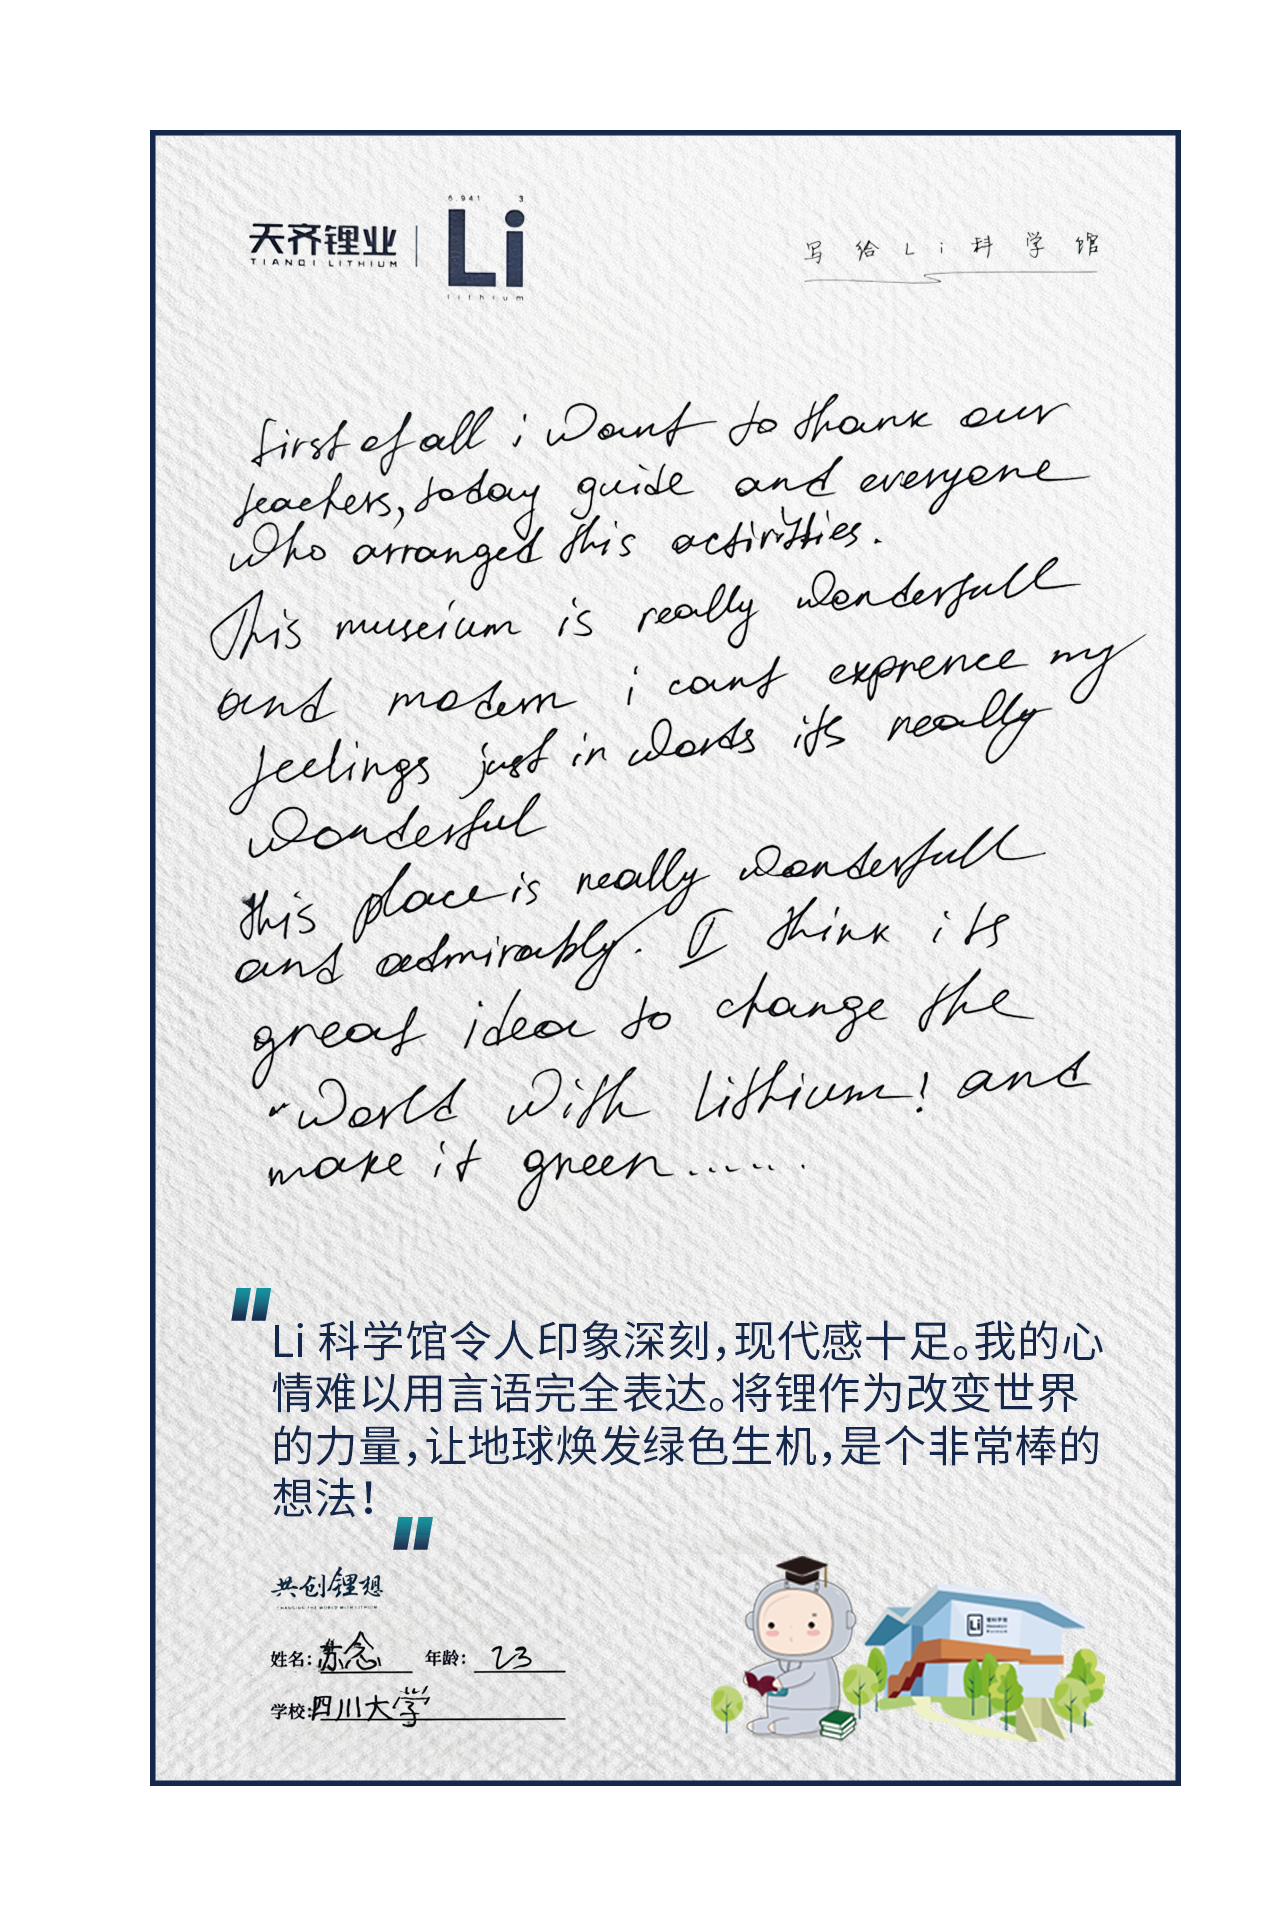 6.941 3
天齐锂业
TIANQI LITHIUM
Li
lithium
写给Li科学馆
first of all i want to thank our
teachers, today guide and everyone
who arranged this activitties.
This museium is really wonderfull
and modern i cant exprence my
feelings just in words it's really
wonderful
this place is really wonderfull
and admirably. I think its
great idea to change the
"World With Lithium! and
make it green......
Li 科学馆令人印象深刻，现代感十足。我的心
情难以用言语完全表达。将锂作为改变世界
的力量，让地球焕发绿色生机，是个非常棒的
想法！
共创锂想
CHANGING THE WORLD WITH LITHIUM
姓名：苏念 年龄：23
学校：四川大学
Li